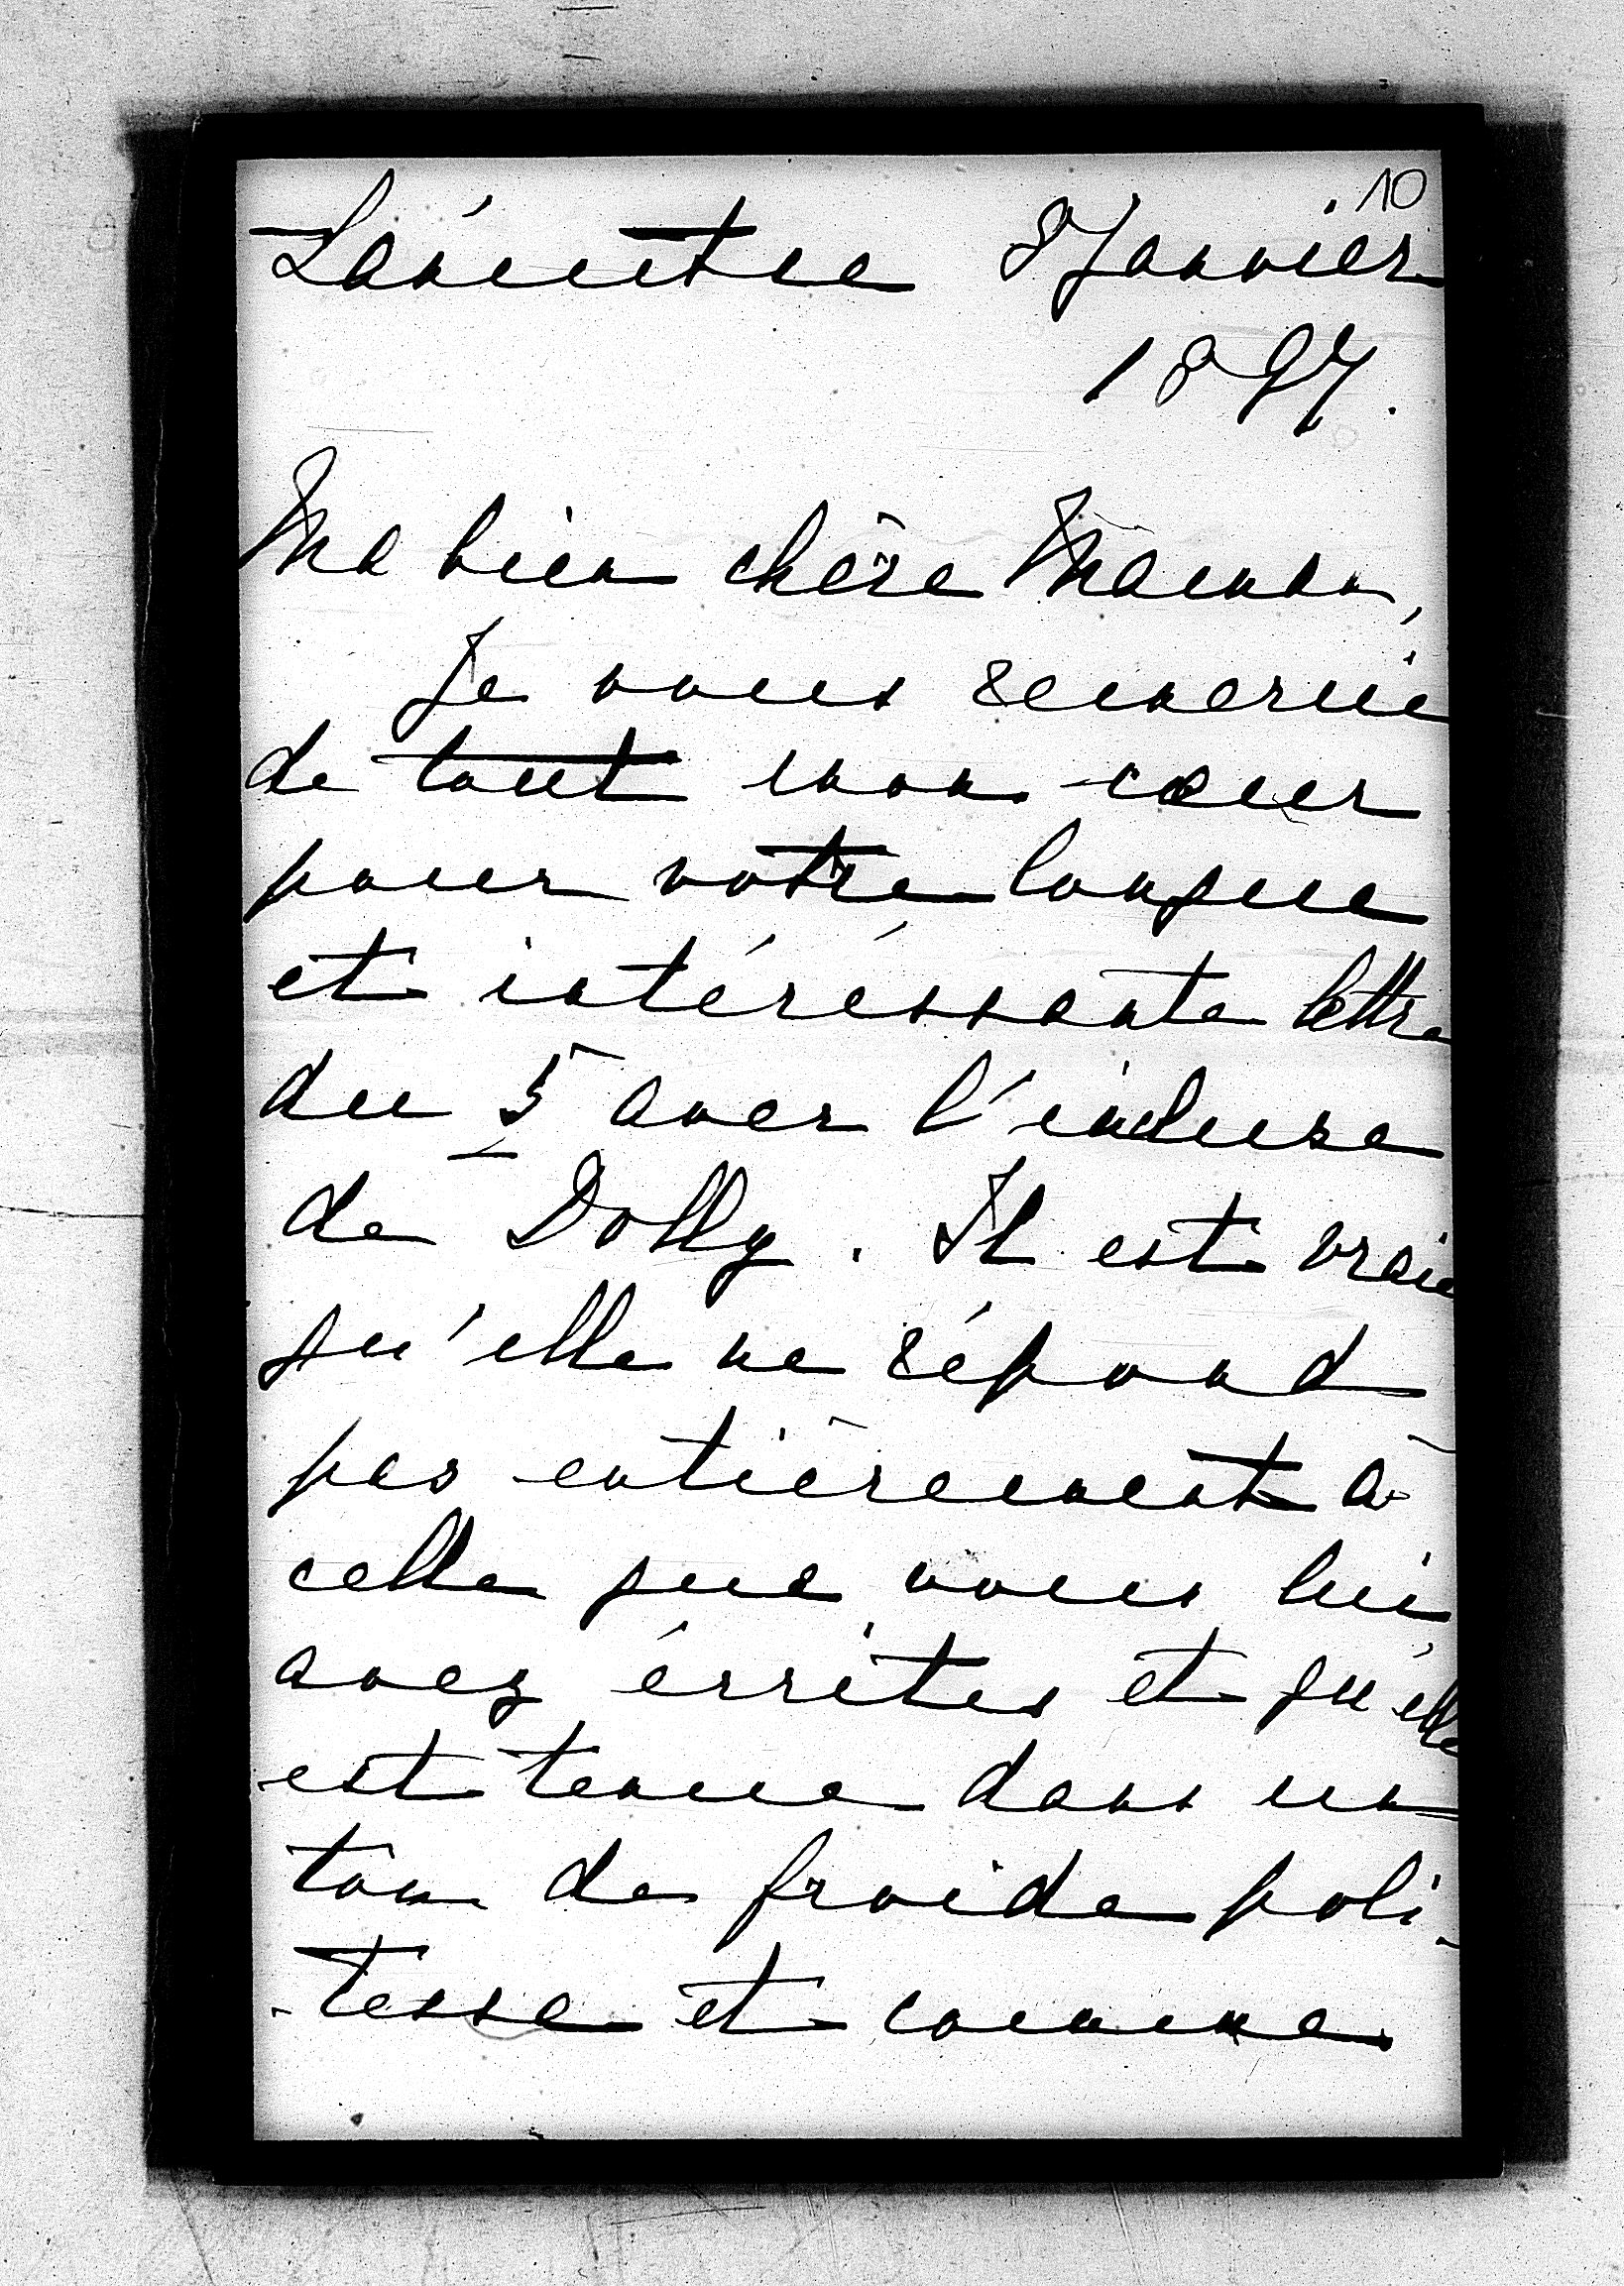 10
Lànetce 8 Janvier
1897.
Ma bien chère Maman,
Je vous remercie
de tout mon cœur
pour votre longue
et intéréssante lettre
du 5 avec l'incluse
de Dolly. Il est vraie
qu'elle ne répond
pas entièrement à
celle que vous lui
avez écrites et qu'elle
est tenue dans un
ton de froide poli-
-tesse et comme